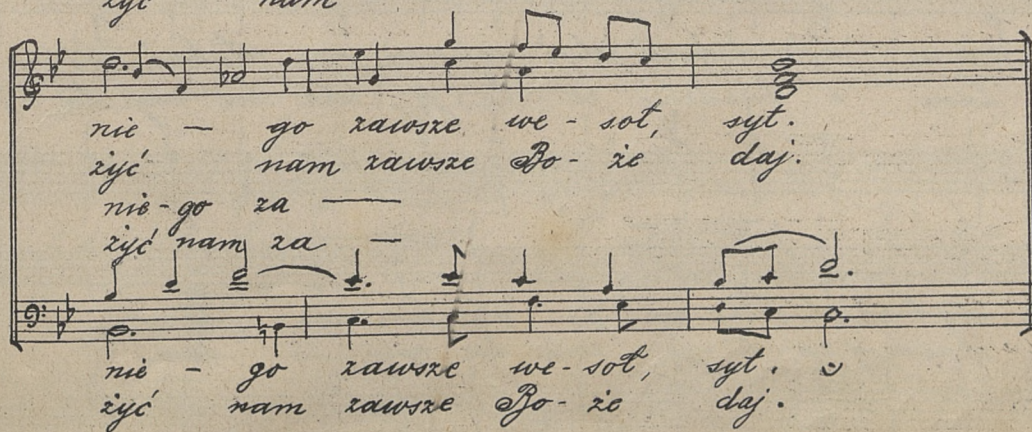 żyć nam
nie – go zawsze we - soł, syt.
żyć nam zawsze Bo - że daj.
nie - go za —
żyć nam za —
nie - go zawsze we - soł, syt.
żyć nam zawsze Bo - że daj.